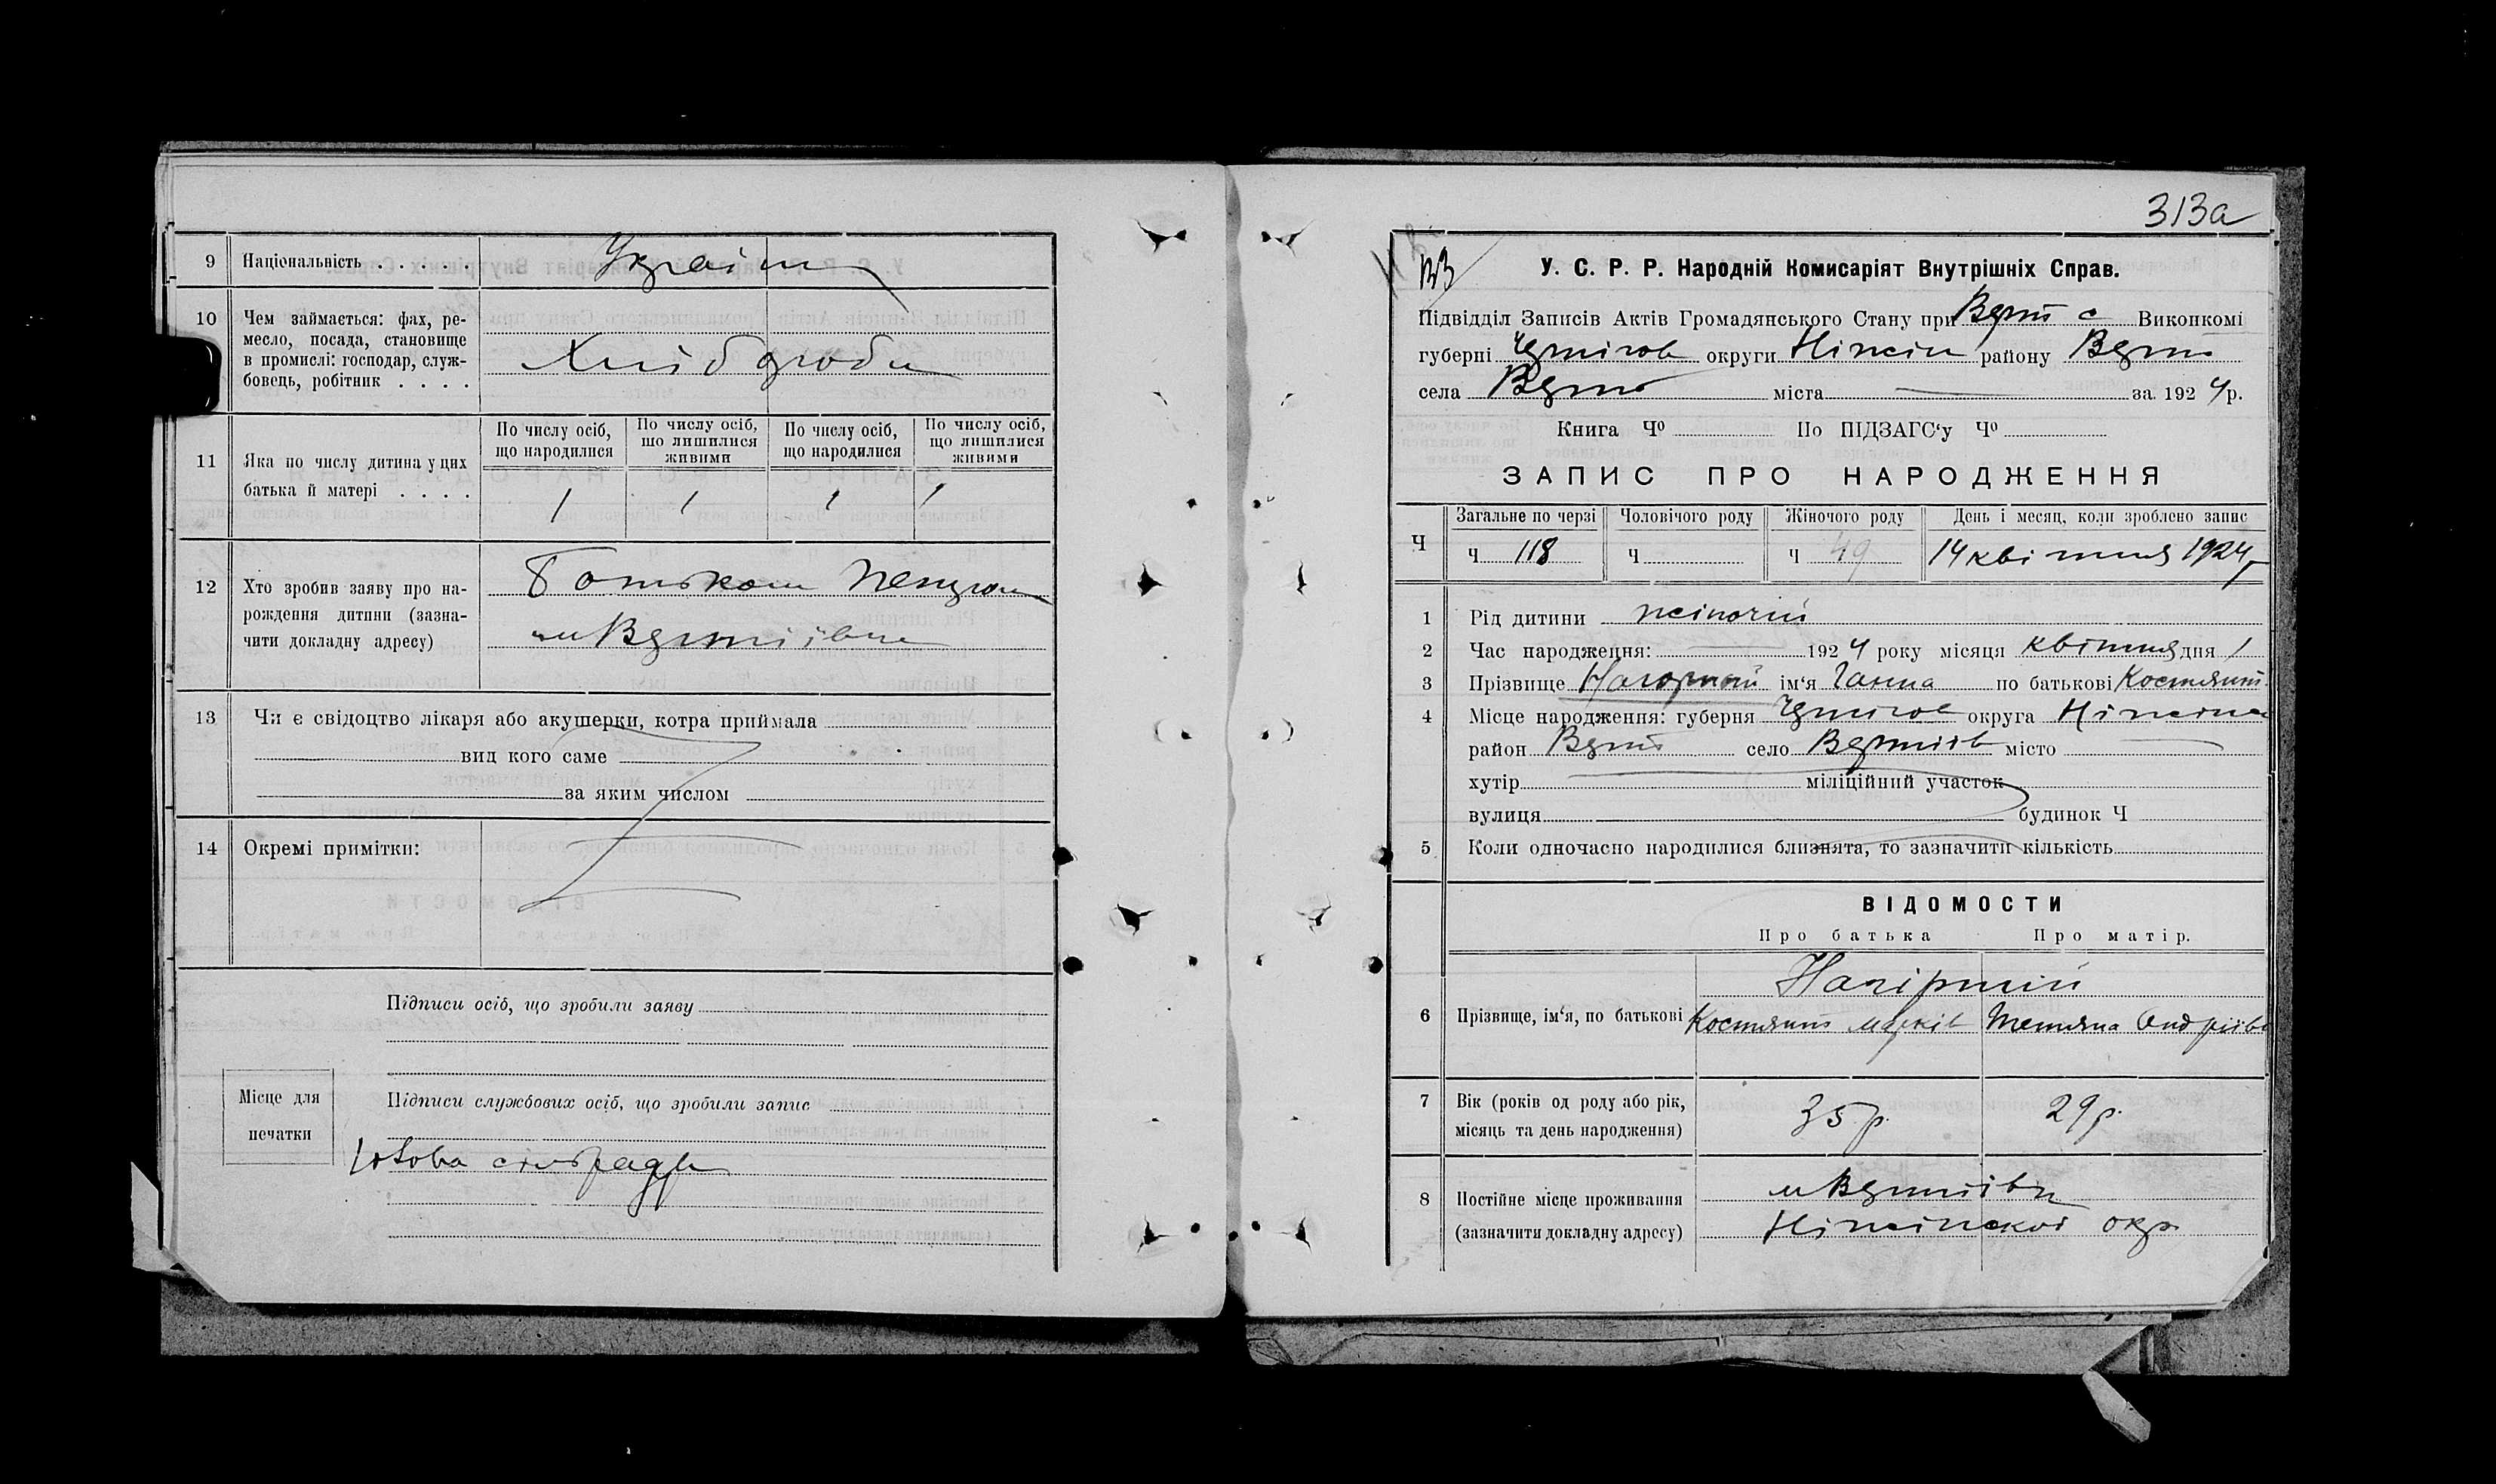 9 Національність . . . . Україн
10 Чем займається: фах, ре-
месло, посада, становище
в промислі: господар, служ-
бовець, робітник . . . .
Хлібороби
11 Яка по числу дитина у цих
батька й матері . . . .
По числу осіб, що народилися
По числу осіб, що лишилися живими
По числу осіб, що народилися
По числу осіб, що лишилися живими
1 1 1 1
12 Хто зробив заяву про на-
рождення дитини (зазна-
чити докладну адресу)
Батьком
м Вертіївци
13 Чи є свідоцтво лікаря або акушерки, котра приймала
вид кого саме
за яким числом
14 Окремі примітки:
Підписи осіб, що зробили заяву
Місце для
печатки
Підписи службових осіб, що зробили запис
Голова сільради
313а
У. С. Р. Р. Народній Комисаріят Внутрішніх Справ.
Підвідділ Записів Актів Громадянського Стану при Верт с Виконкомі
губерні Чернігов округи Ніжін району Верт
села Верт міста за 1924 р.
Книга Ч⁰ По ПІДЗАГС‘у Ч⁰
ЗАПИС ПРО НАРОДЖЕННЯ
Ч Загальне по черзі Чоловічого роду Жіночого роду День і месяц, коли зроблено запис
Ч 118 Ч Ч 49 14 квітня 1924 р
1 Рід дитини жіночий
2 Час народження: 1924 року місяця квітня дня 1
3 Прізвище Нагорний ім'я Ганна по батькові Костянт
4 Місце народження: губерня Чернігов округа Ніжінс
район Верт село Вертіїв місто
хутір міліційний участок
вулиця будинок Ч
5 Коли одночасно народилися близнята, то зазначити кількість
ВІДОМОСТИ
Про батька Про матір.
Нагірний
6 Прізвище, ім‘я, по батькові Костянт Марків Тетяна Андріїв
7 Вік (років од роду або рік,
місяць та день народження)
35 р. 29 р.
8 Постійне місце проживання
(зазначити докладну адресу)
м Вертіївки
Ніжінської окр.